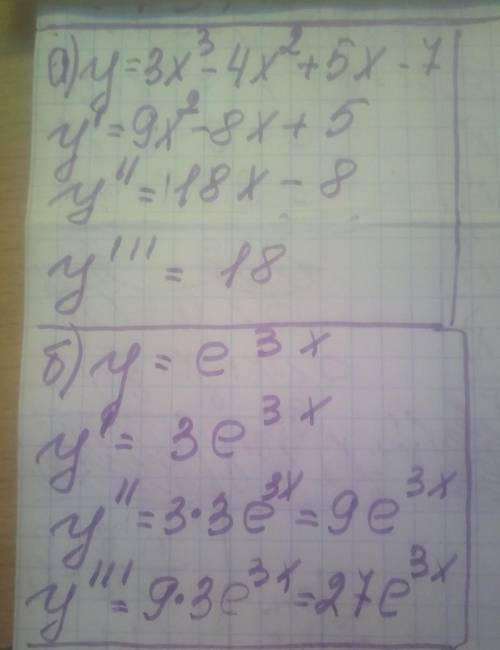 а) y = 3x³ - 4x² + 5x - 7
y' = 9x² - 8x + 5
y'' = 18x - 8
y''' = 18
б) y = e^{3x}
y' = 3e^{3x}
y'' = 3·3e^{3x} = 9e^{3x}
y''' = 9·3e^{3x} = 27e^{3x}